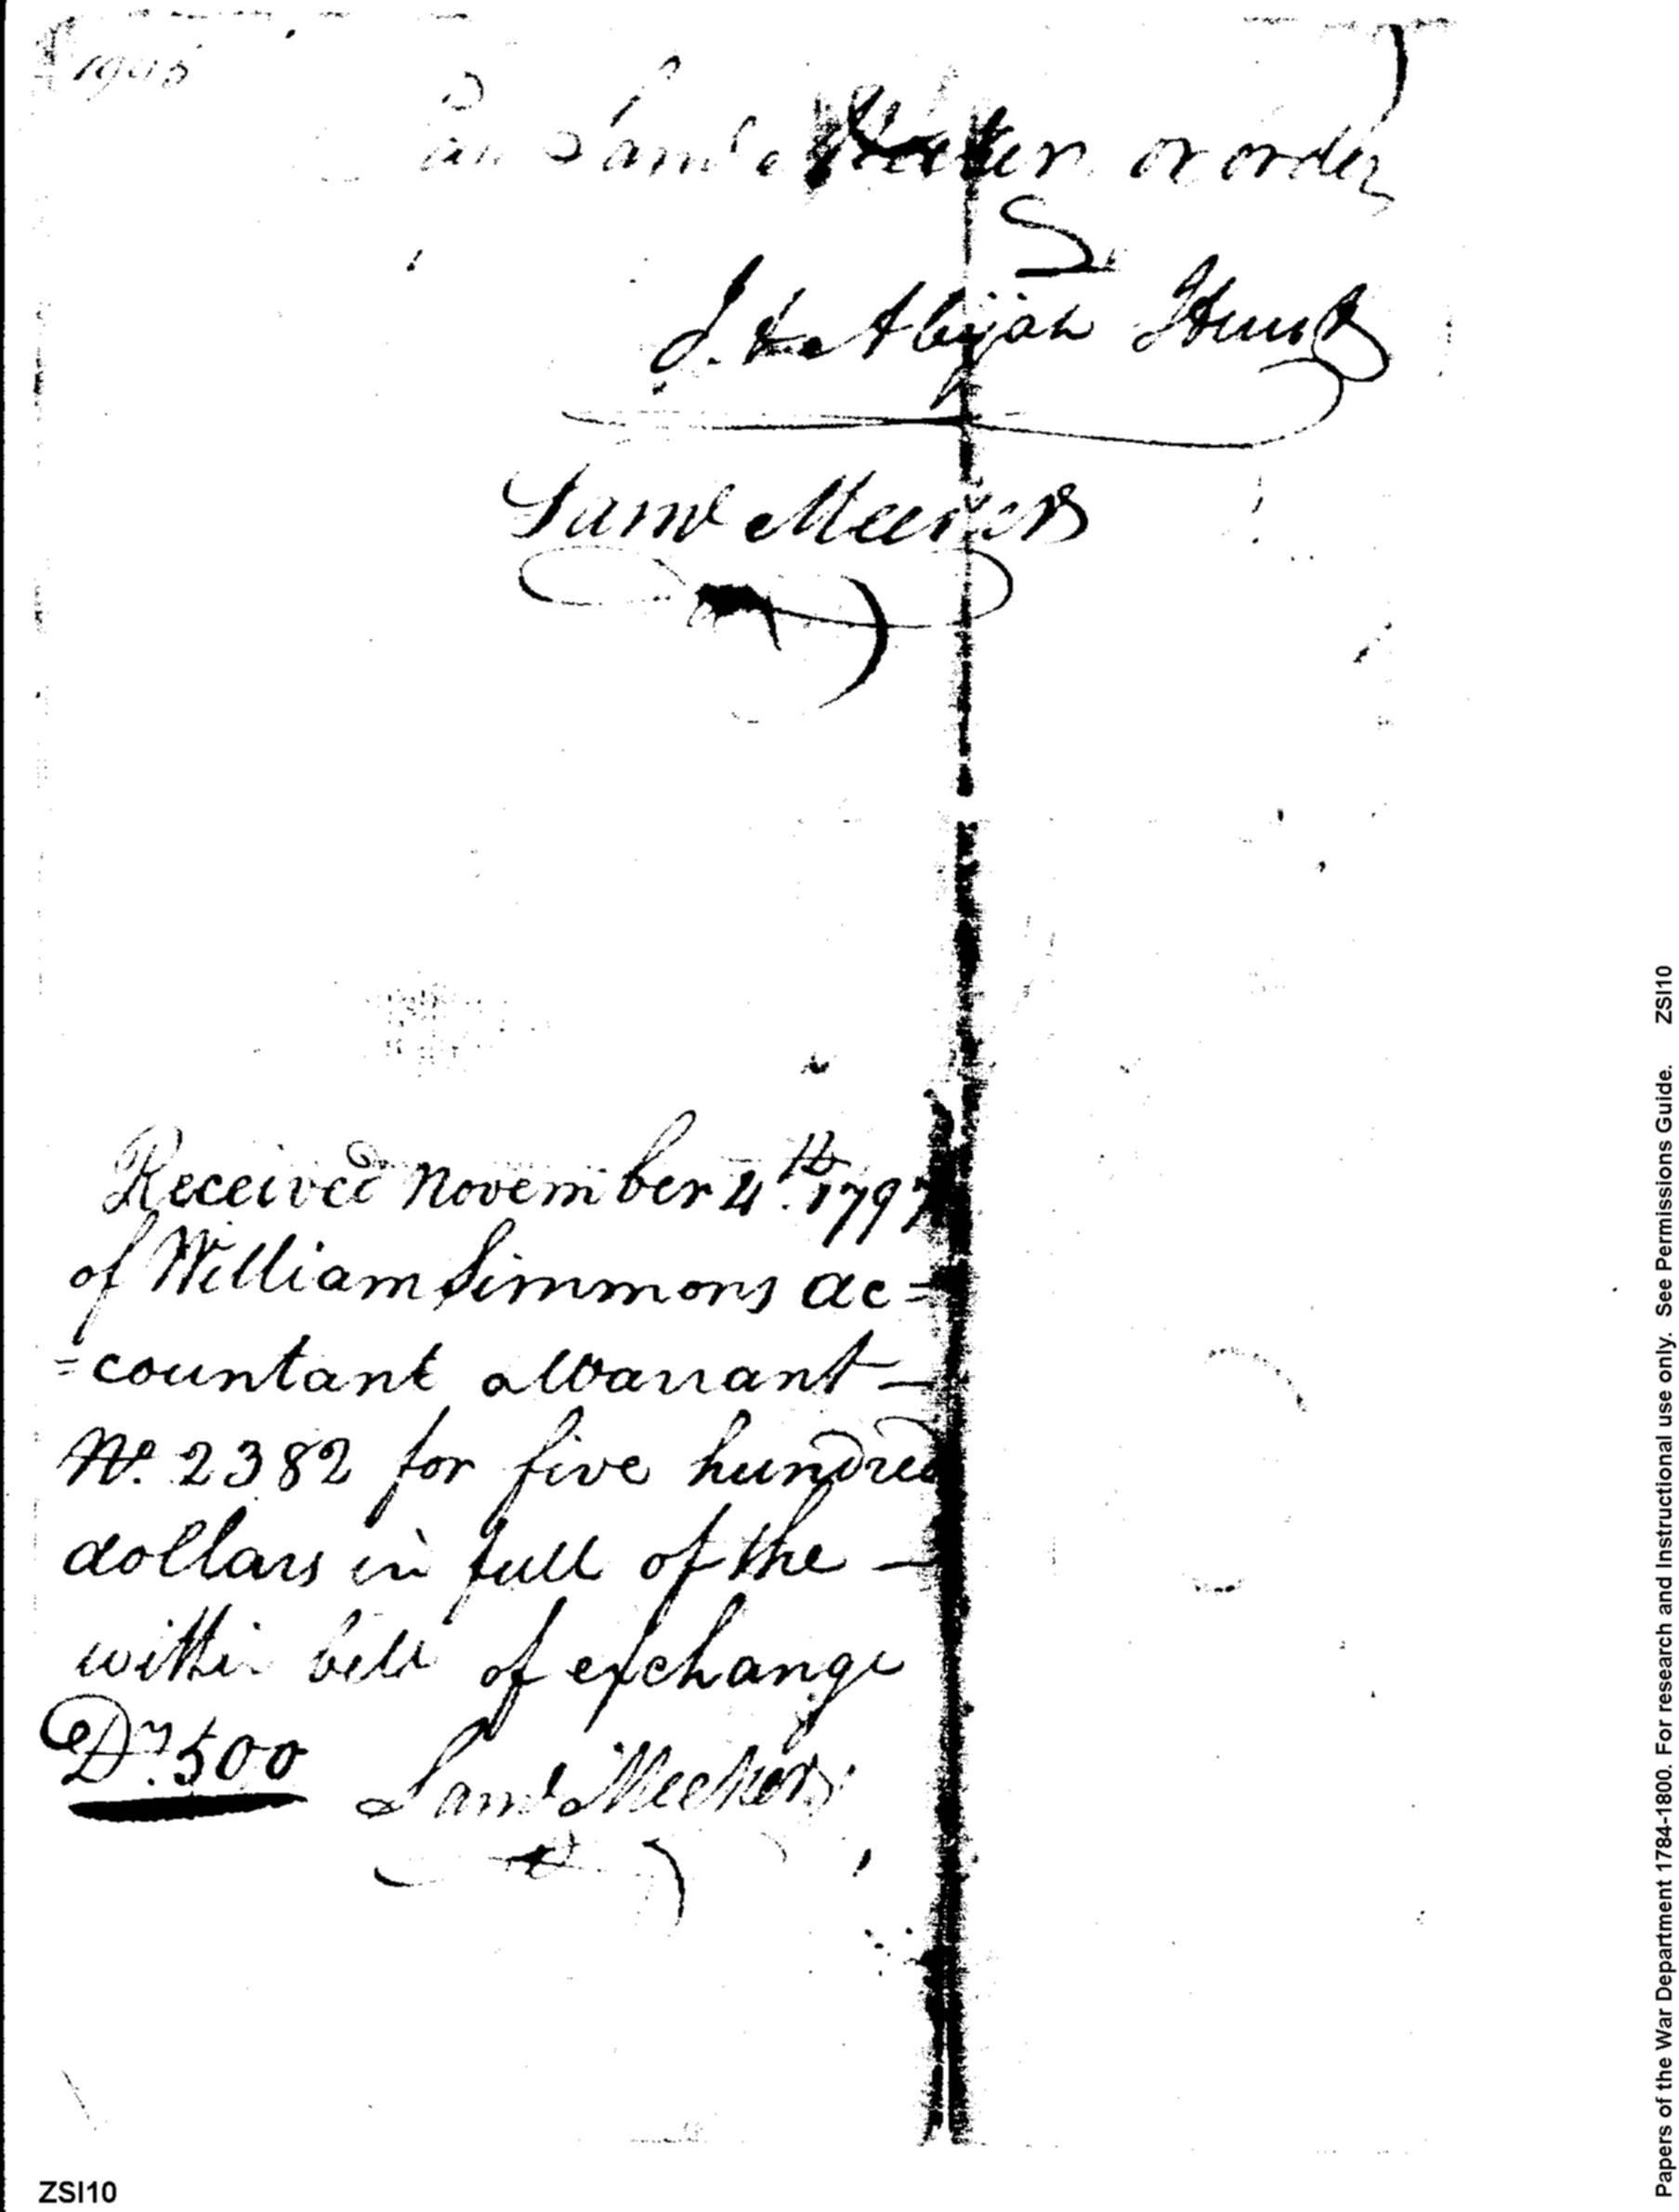 Saml Meeker or order
J. & Abijah Hunt
Saml Meeker
Received November 4th. 1797
of William Simmons ac=
=countant a Warrant
No. 2382 for five hundred
dollars in full of the
within bill of exchange
Drs. 500 Saml Meeker
ZSI10
Papers of the War Department 1784-1800. For research and Instructional use only. See Permissions Guide. ZSI10